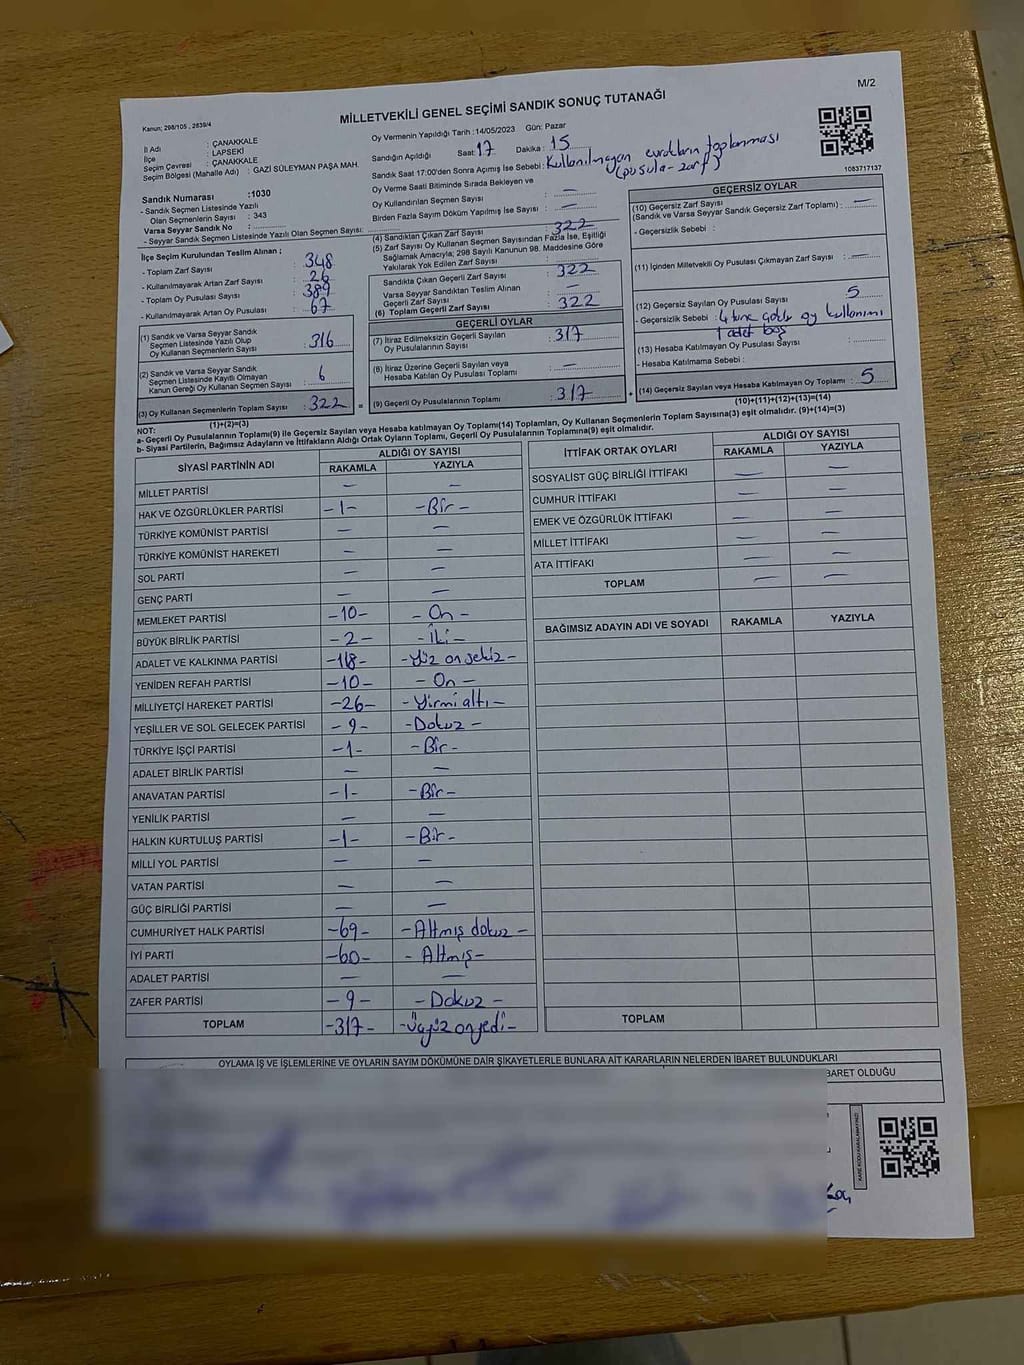 M/2
MİLLETVEKİLİ GENEL SEÇİMİ SANDIK SONUÇ TUTANAĞI
Kanun; 298/105 , 2839/4
İl Adı : ÇANAKKALE
İlçe : LAPSEKİ
Seçim Çevresi : ÇANAKKALE
Seçim Bölgesi (Mahalle Adı) : GAZİ SÜLEYMAN PAŞA MAH.
Sandık Numarası :1030
- Sandık Seçmen Listesinde Yazılı
Olan Seçmenlerin Sayısı : 343
Varsa Seyyar Sandık No :
- Seyyar Sandık Seçmen Listesinde Yazılı Olan Seçmen Sayısı:
Oy Vermenin Yapıldığı Tarih :14/05/2023 Gün: Pazar
Sandığın Açıldığı Saat: 17 Dakika: 15
Sandık Saat 17:00'den Sonra Açımış İse Sebebi: Kullanılmayan evrakların toplanması
(pusula-zarf)
Oy Verme Saati Bitiminde Sırada Bekleyen ve
Oy Kullandırılan Seçmen Sayısı : —
Birden Fazla Sayım Döküm Yapılmış İse Sayısı : —
1083717137
İlçe Seçim Kurulundan Teslim Alınan :
- Toplam Zarf Sayısı : 348
- Kullanılmayarak Artan Zarf Sayısı : 26
- Toplam Oy Pusulası Sayısı : 389
- Kullanılmayarak Artan Oy Pusulası : 67
(1) Sandık ve Varsa Seyyar Sandık
Seçmen Listesinde Yazılı Olup
Oy Kullanan Seçmenlerin Sayısı : 316
(2) Sandık ve Varsa Seyyar Sandık
Seçmen Listesinde Kayıtlı Olmayan
Kanun Gereği Oy Kullanan Seçmen Sayısı : 6
(3) Oy Kullanan Seçmenlerin Toplam Sayısı : 322
(1)+(2)=(3)
(4) Sandıktan Çıkan Zarf Sayısı : 322
(5) Zarf Sayısı Oy Kullanan Seçmen Sayısından Fazla İse, Eşitliği
Sağlamak Amacıyla; 298 Sayılı Kanunun 98. Maddesine Göre
Yakılarak Yok Edilen Zarf Sayısı :
Sandıkta Çıkan Geçerli Zarf Sayısı : 322
Varsa Seyyar Sandıktan Teslim Alınan
Geçerli Zarf Sayısı : —
(6) Toplam Geçerli Zarf Sayısı : 322
GEÇERLİ OYLAR
(7) İtiraz Edilmeksizin Geçerli Sayılan
Oy Pusulalarının Sayısı : 317
(8) İtiraz Üzerine Geçerli Sayılan veya
Hesaba Katılan Oy Pusulası Toplamı : —
(9) Geçerli Oy Pusulalarının Toplamı : 317
GEÇERSİZ OYLAR
(10) Geçersiz Zarf Sayısı
(Sandık ve Varsa Seyyar Sandık Geçersiz Zarf Toplamı) : —
- Geçersizlik Sebebi :
(11) İçinden Milletvekili Oy Pusulası Çıkmayan Zarf Sayısı : —
(12) Geçersiz Sayılan Oy Pusulası Sayısı : 5
- Geçersizlik Sebebi : 4 tane çoklu oy kullanımı
1 adet boş
(13) Hesaba Katılmayan Oy Pusulası Sayısı :
- Hesaba Katılmama Sebebi :
(14) Geçersiz Sayılan veya Hesaba Katılmayan Oy Toplamı : 5
(10)+(11)+(12)+(13)=(14)
NOT:
a- Geçerli Oy Pusulalarının Toplamı(9) ile Geçersiz Sayılan veya Hesaba katılmayan Oy Toplamı(14) Toplamları, Oy Kullanan Seçmenlerin Toplam Sayısına(3) eşit olmalıdır. (9)+(14)=(3)
b- Siyasi Partilerin, Bağımsız Adayların ve İttifakların Aldığı Ortak Oyların Toplamı, Geçerli Oy Pusulalarının Toplamına(9) eşit olmalıdır.
SİYASİ PARTİNİN ADI ALDIĞI OY SAYISI
RAKAMLA YAZIYLA
MİLLET PARTİSİ — —
HAK VE ÖZGÜRLÜKLER PARTİSİ -1- -Bir-
TÜRKİYE KOMÜNİST PARTİSİ — —
TÜRKİYE KOMÜNİST HAREKETİ — —
SOL PARTİ — —
GENÇ PARTİ — —
MEMLEKET PARTİSİ -10- -On-
BÜYÜK BİRLİK PARTİSİ -2- -İki-
ADALET VE KALKINMA PARTİSİ -118- -Yüz on sekiz-
YENİDEN REFAH PARTİSİ -10- -On-
MİLLİYETÇİ HAREKET PARTİSİ -26- -Yirmi altı-
YEŞİLLER VE SOL GELECEK PARTİSİ -9- -Dokuz-
TÜRKİYE İŞÇİ PARTİSİ -1- -Bir-
ADALET BİRLİK PARTİSİ — —
ANAVATAN PARTİSİ -1- -Bir-
YENİLİK PARTİSİ — —
HALKIN KURTULUŞ PARTİSİ -1- -Bir-
MİLLİ YOL PARTİSİ — —
VATAN PARTİSİ — —
GÜÇ BİRLİĞİ PARTİSİ — —
CUMHURİYET HALK PARTİSİ -69- -Altmış dokuz-
İYİ PARTİ -60- -Altmış-
ADALET PARTİSİ — —
ZAFER PARTİSİ -9- -Dokuz-
TOPLAM -317- -Üçyüz onyedi-
İTTİFAK ORTAK OYLARI ALDIĞI OY SAYISI
RAKAMLA YAZIYLA
SOSYALİST GÜÇ BİRLİĞİ İTTİFAKI — —
CUMHUR İTTİFAKI — —
EMEK VE ÖZGÜRLÜK İTTİFAKI — —
MİLLET İTTİFAKI — —
ATA İTTİFAKI — —
TOPLAM — —
BAĞIMSIZ ADAYIN ADI VE SOYADI RAKAMLA YAZIYLA
TOPLAM
OYLAMA İŞ VE İŞLEMLERİNE VE OYLARIN SAYIM DÖKÜMÜNE DAİR ŞİKAYETLERLE BUNLARA AİT KARARLARIN NELERDEN İBARET BULUNDUKLARI
BARET OLDUĞU
KARE KODU KARALAMAYINIZ!